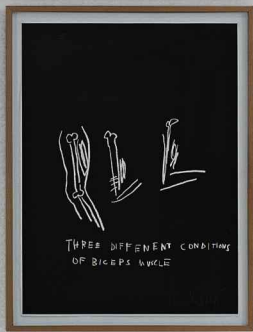 THREE DIFFENENT CONDITIONS
OF BICEPS MUSCLE